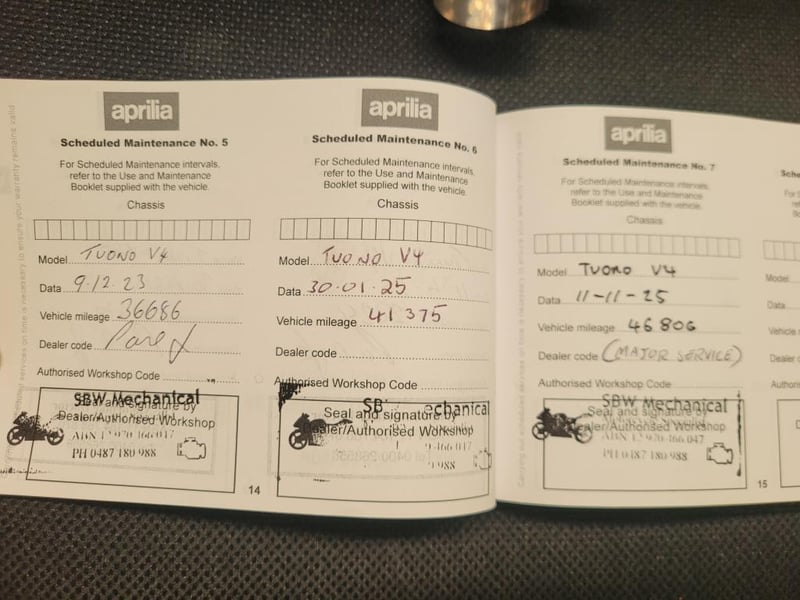 aprilia
Scheduled Maintenance No. 5
For Scheduled Maintenance intervals,
refer to the Use and Maintenance
Booklet supplied with the vehicle.
Chassis
Model TUONO V4
Data 9.12.23
Vehicle mileage 36686
Dealer code
Authorised Workshop Code
SBW Mechanical
Seal and signature by
Dealer/Authorised Workshop
PH 0487 180 988
14
aprilia
Scheduled Maintenance No. 6
For Scheduled Maintenance intervals,
refer to the Use and Maintenance
Booklet supplied with the vehicle.
Chassis
Model TUONO V4
Data 30.01.25
Vehicle mileage 41 375
Dealer code
Authorised Workshop Code
Seal and signature by
Dealer/Authorised Workshop
aprilia
Scheduled Maintenance No. 7
For Scheduled Maintenance intervals,
refer to the Use and Maintenance
Booklet supplied with the vehicle.
Chassis
Model TUONO V4
Data 11-11-25
Vehicle mileage 46806
Dealer code (MAJOR SERVICE)
Authorised Workshop Code
SBW Mechanical
Seal and signature by
Dealer/Authorised Workshop
PH 0487 180 988
15